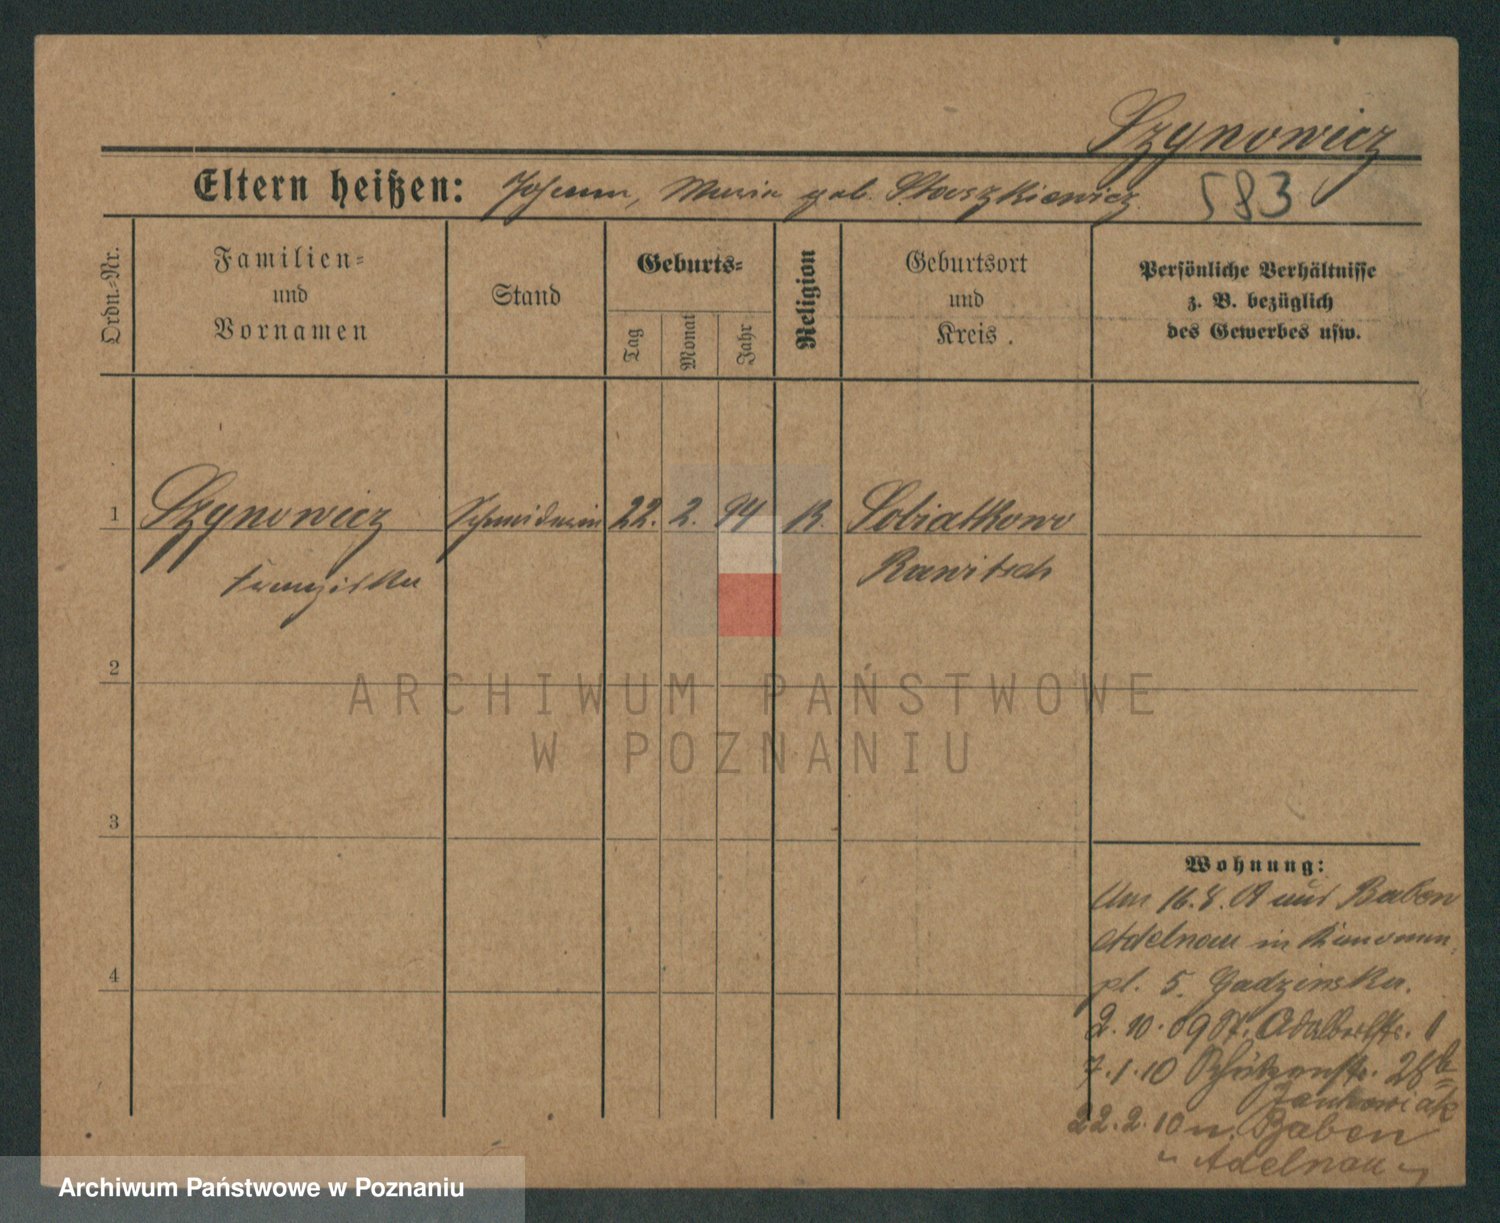 Szynowicz
Eltern heißen: Johann, Maria geb. Staszkiewicz
583
Ordn.-Nr.
Familien-
und
Vornamen
Stand
Geburts-
Tag
Monat
Jahr
Religion
Geburtsort
und
Kreis.
Persönliche Verhältnisse
z. B. bezüglich
des Gewerbes usw.
1
Szynowicz
Schneiderin
22. 2. 94
K.
Sobialkowo
Franziska
Rawitsch
2
3
4
Wohnung:
Am 16. 8. 09 aus Baben
Adelnau in
pl. 5. Gadzinska.
2. 10. 09 St. Adalbertstr. 1
7. 1. 10 Schützenstr. 28b
Jankowiak
22. 2. 10 n. Baben
Adelnau
ARCHIWUM PAŃSTWOWE
W POZNANIU
Archiwum Państwowe w Poznaniu